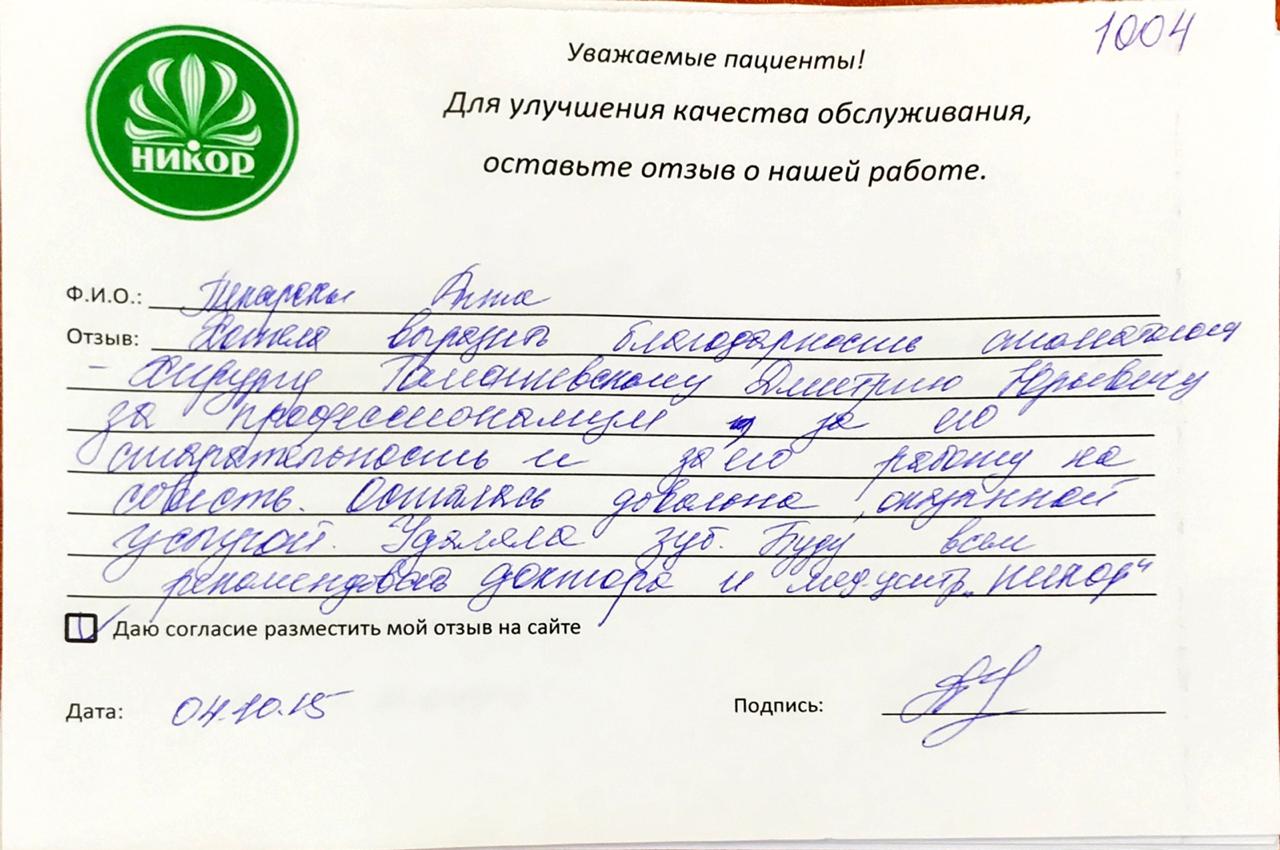 1004
НИКОР
Уважаемые пациенты!
Для улучшения качества обслуживания,
оставьте отзыв о нашей работе.
Ф.И.О.:
Отзыв: Хотела выразить благодарность стоматологу
- хирургу Дмитрию Юрьевичу
за профессионализм и за его
старательность и за его работу на
совесть. Осталась довольна оказанной
услугой. Удаляла зуб. Буду всем
рекомендовать доктора и медцентр „Никор“
Даю согласие разместить мой отзыв на сайте
Дата: 04.10.15
Подпись: